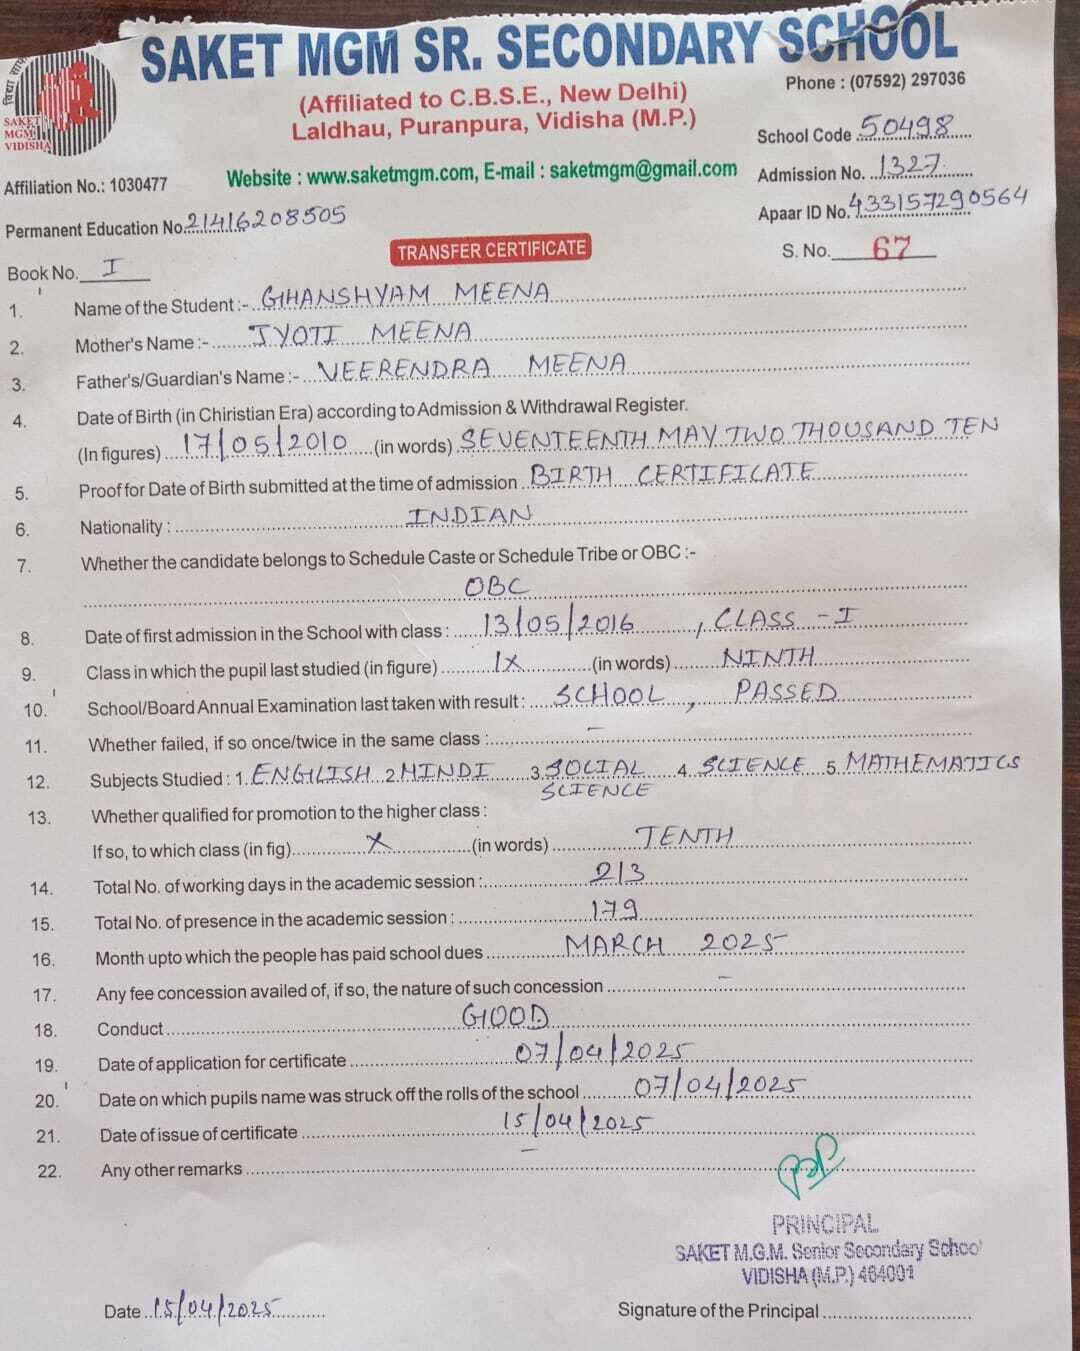 SAKET MGM SR. SECONDARY SCHOOL
विद्या
SAKET
MGM
VIDISHA
(Affiliated to C.B.S.E., New Delhi)
Laldhau, Puranpura, Vidisha (M.P.)
Phone : (07592) 297036
School Code 50498
Affiliation No.: 1030477
Website : www.saketmgm.com, E-mail : saketmgm@gmail.com
Admission No. 1327
Permanent Education No. 21416208505
Apaar ID No. 433157290564
TRANSFER CERTIFICATE
S. No. 67
Book No. I
1. Name of the Student :- GHANSHYAM MEENA
2. Mother's Name :- JYOTI MEENA
3. Father's/Guardian's Name :- VEERENDRA MEENA
4. Date of Birth (in Chiristian Era) according to Admission & Withdrawal Register.
(In figures) 17/05/2010 (in words) SEVENTEENTH MAY TWO THOUSAND TEN
5. Proof for Date of Birth submitted at the time of admission BIRTH CERTIFICATE
6. Nationality : INDIAN
7. Whether the candidate belongs to Schedule Caste or Schedule Tribe or OBC :-
OBC
8. Date of first admission in the School with class : 13/05/2016 , CLASS - I
9. Class in which the pupil last studied (in figure) IX (in words) NINTH
10. School/Board Annual Examination last taken with result : SCHOOL , PASSED
11. Whether failed, if so once/twice in the same class : –
12. Subjects Studied : 1. ENGILISH 2 HINDI 3. SOCIAL SCIENCE 4. SCIENCE 5. MATHEMATICS
13. Whether qualified for promotion to the higher class :
If so, to which class (in fig) X (in words) TENTH
14. Total No. of working days in the academic session : 213
15. Total No. of presence in the academic session : 179
16. Month upto which the people has paid school dues MARCH 2025
17. Any fee concession availed of, if so, the nature of such concession –
18. Conduct GOOD
19. Date of application for certificate 07/04/2025
20. Date on which pupils name was struck off the rolls of the school 07/04/2025
21. Date of issue of certificate 15/04/2025
22. Any other remarks –
PRINCIPAL
SAKET M.G.M. Senior Secondary School
VIDISHA (M.P.) 464001
Date 15/04/2025
Signature of the Principal